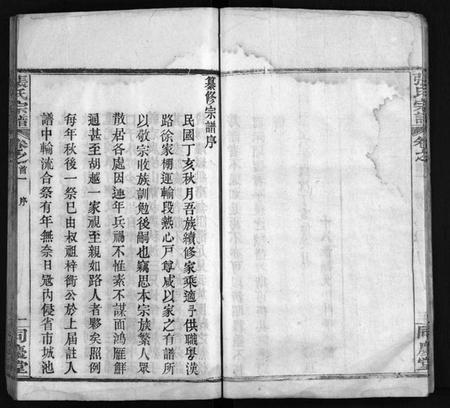 張氏宗譜
卷之
同慶堂
纂修宗譜序
民國丁亥秋月吾族續修家乘適予供職粵漢
路徐家棚運輸段熱心戶尊咸以家之有譜所
以敬宗收族訓勉後嗣也竊思本宗族繁人眾
散居各處因連年兵禍不惟素不謀面鴻雁鮮
過甚至胡越一家視至親如路人者夥矣照例
每年秋後一祭已由叔祖梓衡公於上屆註入
譜中輪流合祭有年無奈日寇內侵省市城池
張氏宗譜
卷之首
序
一
同慶堂